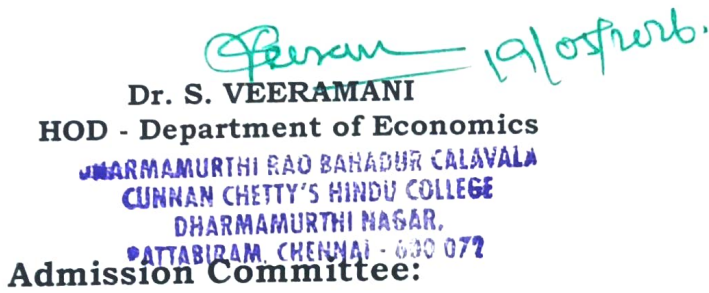 19/05/2026.
Dr. S. VEERAMANI
HOD - Department of Economics
DHARMAMURTHI RAO BAHADUR CALAVALA
CUNNAN CHETTY'S HINDU COLLEGE
DHARMAMURTHI NAGAR,
PATTABIRAM, CHENNAI - 600 072
Admission Committee: